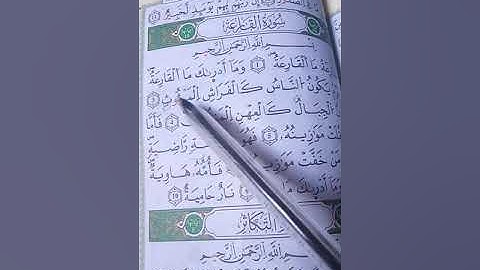 إِنَّ رَبَّهُم بِهِمْ يَوْمَئِذٍ لَّخَبِيرٌ ١١
سُورَةُ القَارِعَةِ
بِسْمِ اللَّهِ الرَّحْمَٰنِ الرَّحِيمِ
مَا الْقَارِعَةُ ٢ وَمَا أَدْرَاكَ مَا الْقَارِعَةُ
يَكُونُ النَّاسُ كَالْفَرَاشِ الْمَبْثُوثِ ٤
الْجِبَالُ كَالْعِهْنِ فَأَمَّا
مَوَازِينُهُ ٦ فَهُوَ رَّاضِيَةٍ
مَنْ خَفَّتْ مَوَازِينُهُ فَأُمُّهُ هَاوِيَةٌ
أَدْرَاكَ مَا نَارٌ حَامِيَةٌ
التَّكَاثُرِ
بِسْمِ اللَّهِ الرَّحْمَٰنِ الرَّحِيمِ